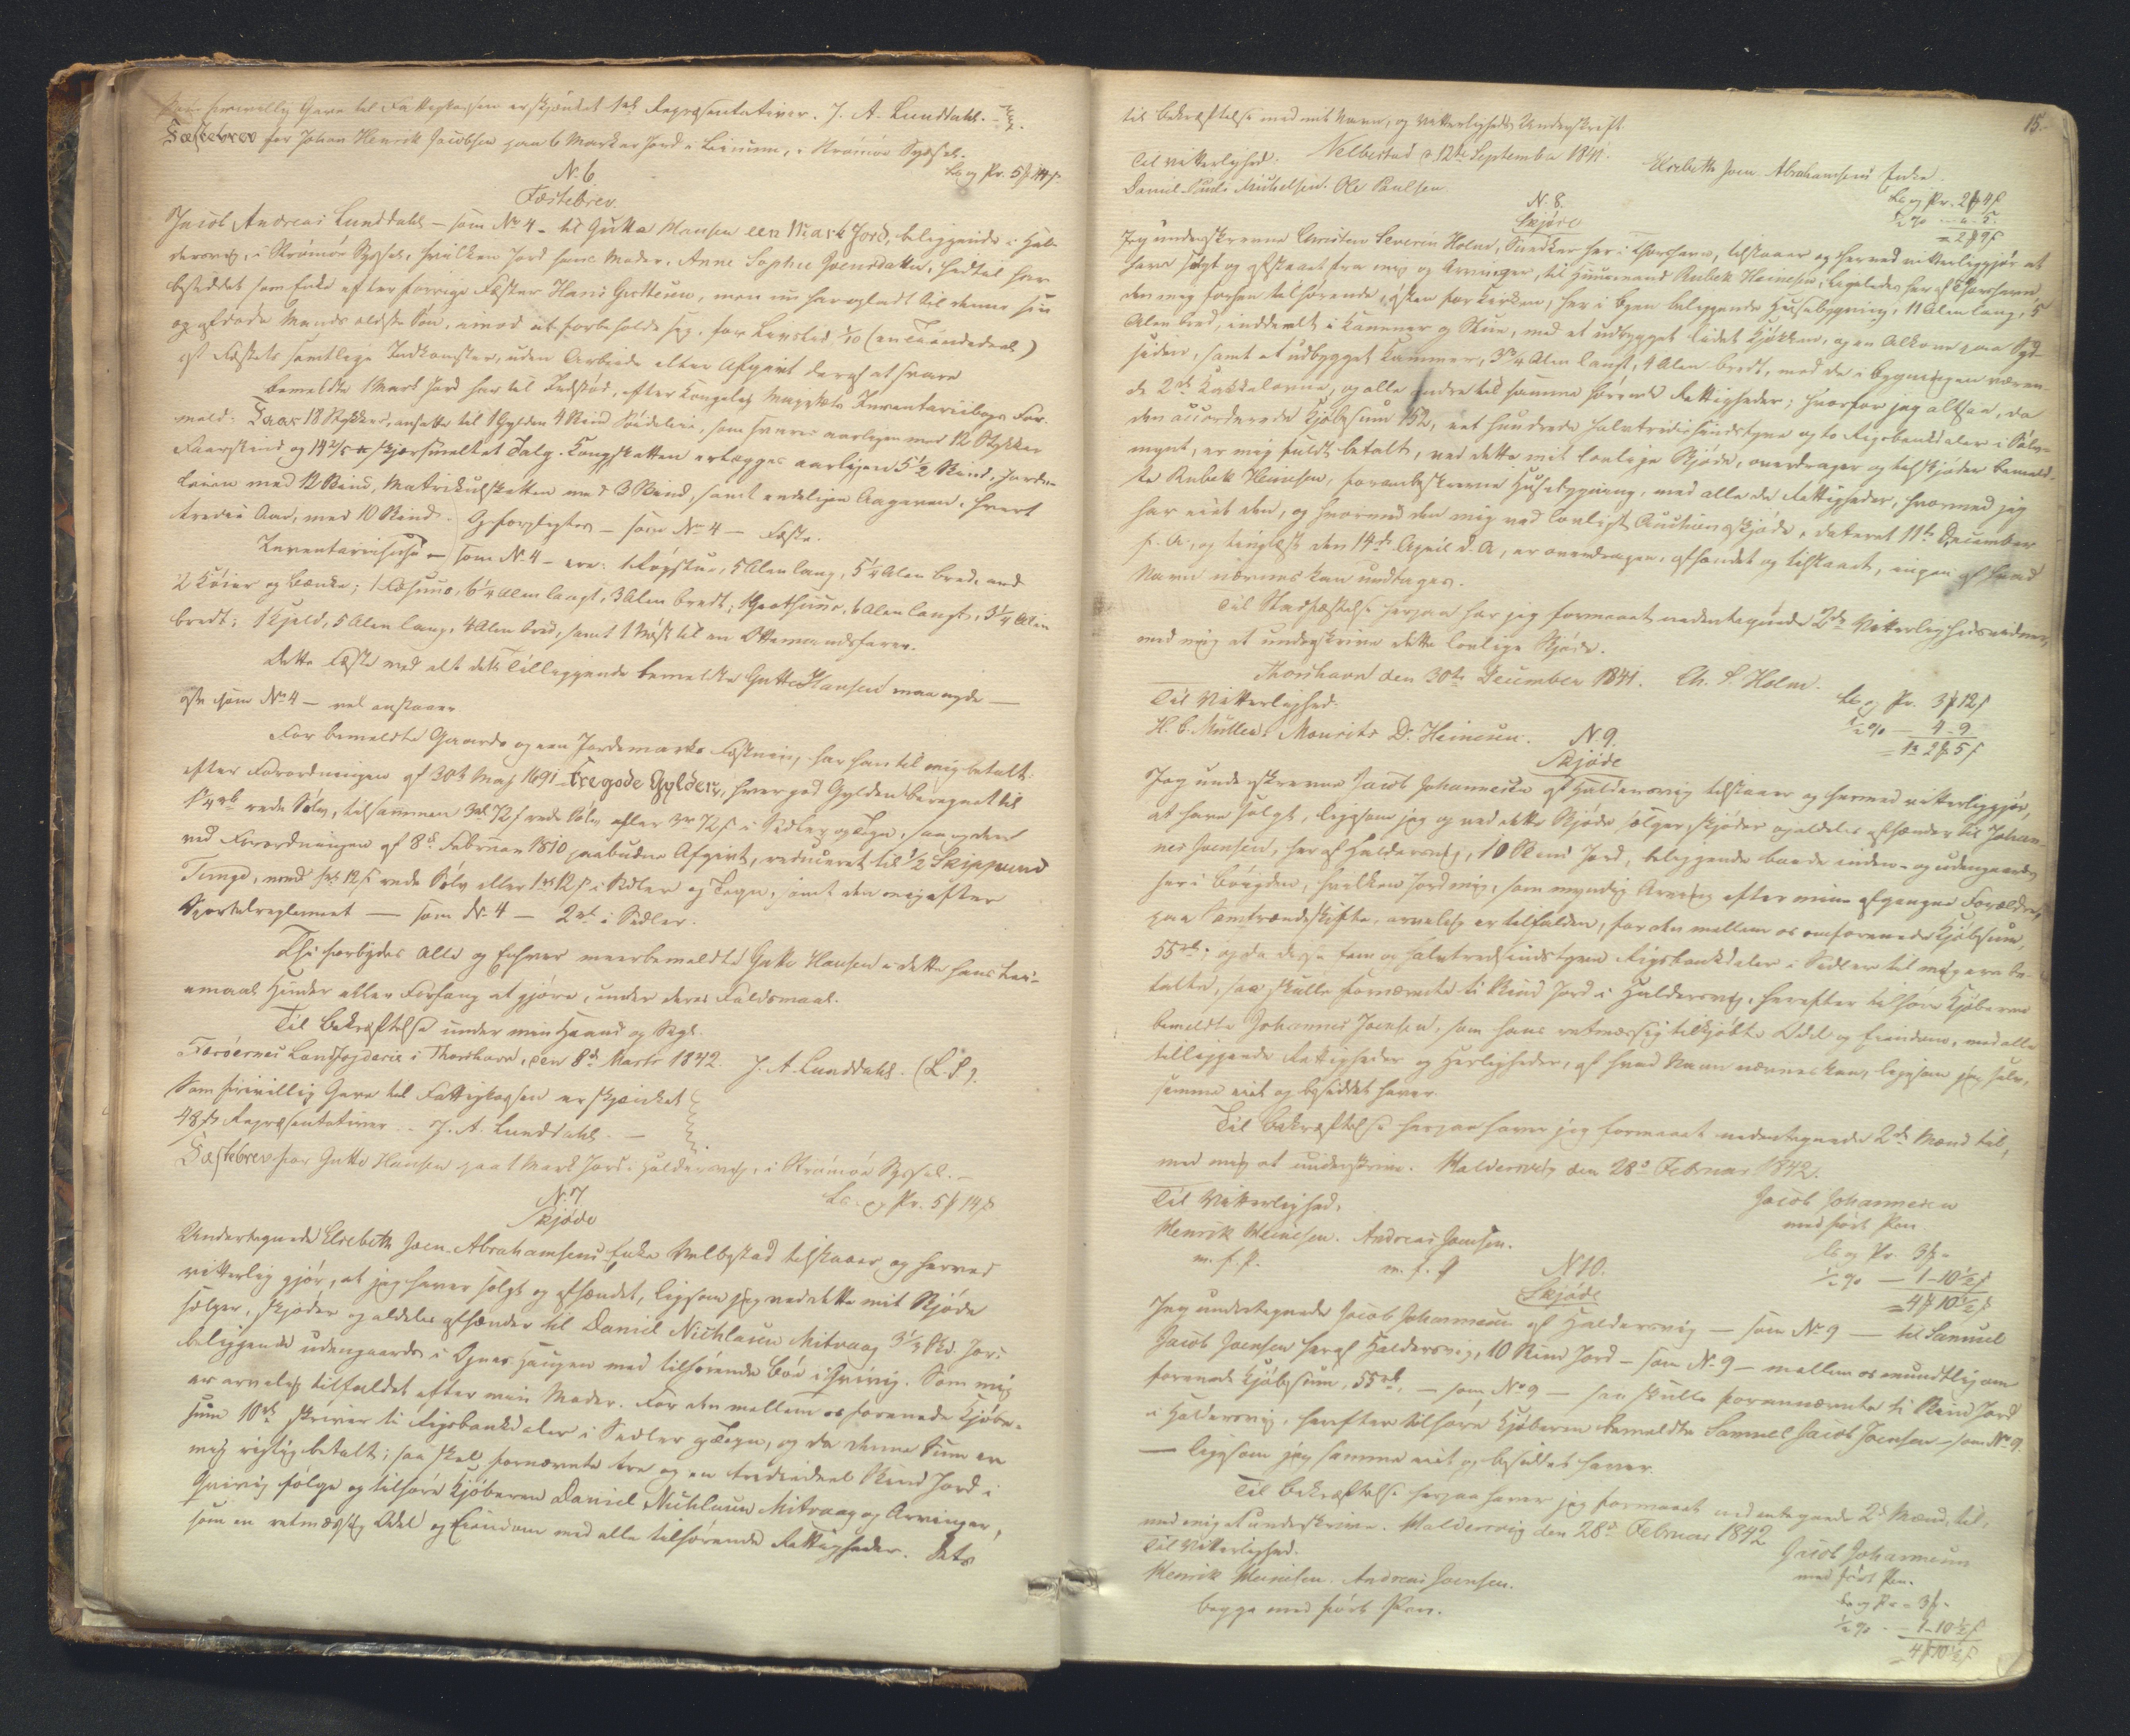 Som frivillig Gave til Fattigkassen er skjænket 1rbd Repræsentativer. J. A. Lunddahl.
Fæstebrev for Johan Henrik Jacobsen paa 6 Marker Jord i Leinum, i Strömöe Syssel.
Le og Pr. 5 ℔ 14 s.
N. 6
Fæstebrev
Jacob Andreas Lunddahl – som No 4 – til Gutte Hansen een Mark Jord, beliggende i Hal-
dersvig, i Strömöe Syssel, hvilken Jord hans Moder, Anne Sophie Joensdatter, hidtil har
besiddet som Enke efter forrige Fæster Hans Guttesen, men nu har opladt til denne sin
og afdöde Mands ældste Sön, imod at forbeholde sig, for Levetid 1/10 (en Tiendedeel)
af Fæstets samtlige Indkomster, uden Arbeide eller Afgivt deraf at svare
bemeldte 1 Mark Jord har til Indstöd, efter Kongelig Mayestæts Inventariibogs For-
meld: Faar 18 Stykker, ansatte til 1 Gylden 4 Skind Söideleie, som svares aarligen med 12 Stykker
Faareskind og 14 2/5 ℔ skjærsmeltet Talg. Kongskatten erlægges aarligen 5 1/2 Skind, Jorde-
leien med 12 Skind, Matrikulskatten med 3 Skind, samt endeligen Aagaven, hvert
tredie Aar, med 10 Skind. Og forpligter – som No 4 – Fæste.
Inventariihuse – som No 4 – ere: 1 Rögstue, 5 Alen lang, 5 1/4 Alen bred, med
2 Köier og Bænke; 1 Fæhuus, 6 1/4 Alen langt, 3 Alen bredt; 1 Groothuus, 6 Alen langt, 3 1/4 Alen
bredt; 1 Hjeld, 5 Alen lang, 4 Alen bred, samt 1 Nöst til en Ottemandsfarer.
dette Fæste med alt dets Tilliggende bemeldte Gutte Hansen maa nyde –
ofte som No 4 – vel anstaaer
For bemeldte Gaards og een Jordemarks Fæstning, har han til mig betalt
efter Forordningen af 30te Maj 1691 Tre gode Gylden, hver god Gylden beregnet til
rede Sölv, tilsammen 3rbd 72 s rede Sölv eller 3rbd 72 s i Sedler og Tegn, saa og den
ved Forordningen af 8de Februar 1810 paabudne Afgivt, reduceret til 1/2 Skippund
Tunge, med 1rbd 12 s rede Sölv eller 1rbd 12 s i Sedler og Tegn, samt den mig efter
Sportelreglement – som No 4 – 2rbd i Sedler.
Thi forbydes Alle og Enhver meerbemeldte Gutte Hansen i dette hans Lei-
emaal Hinder eller Forfang at gjöre, under deres Faldsmaal.
Til Bekræftelse under min Haand og Segl.
Færöernes Landfogderie i Thorshavn, den 8de Marts 1842. J. A. Lunddahl. (L. S.).
Som frivillig Gave til Fattigkassen er skjænket
48 s Repræsentativer. J. A. Lunddahl. –
Fæstebrev for Gutte Hansen paa 1 Mark Jord i Haldersvig, i Strömöe Syssel. –
Le og Pr. 5 ℔ 14 s
N. 7
Skjöde
Undertegnede Elsebeth Joen Abrahamsens Enke Velbestad tilstaaer og herved
vitterlig gjör, at jeg haver solgt og afhændet, ligesom jeg ved dette mit Skjöde
sælger, skjöder og aldeles afhænder til Daniel Nichlasen Mitvaag 3 1/3 Skd. Jord
beliggende udengaards i Haugen med tilhörende Böe i Qvivig. Som mig
er arvelig tilfaldet efter min Moder. For den mellem os forenede Kjöbe-
sum 10rbd skriver ti Rigsbankdaler i Sedler og Tegn, og da denne Sum er
mig rigtig betalt; saa skal fornævnte tre og en trediedeel Skind Jord i
Qvivig fölge og tilhöre Kjöberen Daniel Nichlasen Mitvaag og Arvinger,
som en retmæssig Odel og Eiendom med alle tilhörende Rettigheder. Dets
15.
til Bekræftelse med mit Navn, og Vitterligheds Underskrift.
Velbestad d 12te September 1841. Elsebeth Joen Abrahamsens Enke.
Til Vitterlighed:
Daniel Pauli Michelsen. Ole Paulsen.
Le og Pr. 2 ℔ 4 s
1/2 % – " 5.
= 2 ℔ 9 s
N. 8.
Skjöde
Jeg underskrevne Christen Severin Holm, Snedker her i Thorshavn, tilstaaer og herved vitterliggjör at
have solgt og afstaaet fra mig og Arvinger, til Huusmand Rubek Heinesen, ligeledes her af Thorshavn
den mig forhen tilhörende, östen for Kirken, her i Byen beliggende Huusebygning, 11 Alen lang, 5
Alen bred, inddeelt i Kammer og Stue, med et udbygget lidet Kjökken, og en Alkove paa Syd-
siden, samt et udbygget Kammer, 3 3/4 Alen langt, 4 Alen bredt, med de i Bygningen væren-
de 2de Kakelovne, og alle andre til samme hörende Rettigheder; hvorfor jeg altsaa, da
den accorderede Kjöbesum 152, eet hundrede halvtredsindstyve og to Rigsbankdaler i Sölv-
mynt, er mig fuldt betalt, ved dette mit lovlige Skjöde, overdrager og tilskjöder bemeld-
te Rubek Heinesen, forombeskrevne Huusebygning, med alle de Rettigheder, hvormed jeg
har eiet den, og hvormed den mig ved lovligt Auctionsskjöde, dateret 11te December
f. A., og tinglæst den 14de April d. A., er overdragen, afhændet og tilstaaet, ingen af hvad
Navn nævnes kan undtagen.
Til Stadfæstelse herpaa har jeg formaaet nedentegnede 2de Vitterlighedsvidner,
med mig at underskrive dette lovlige Skjöde.
Thorshavn den 30te December 1841. Ch. S. Holm.
Til Vitterlighed:
H. C. Müller. Mourits D. Heinesen.
Le og Pr. 3 ℔ 12 s
1/2 % – 4 - 9
N 9.
Skjöde
Jeg underskrevne Jacob Johannesen af Haldersvig tilstaaer og hermed vitterliggjör,
at have solgt, ligesom jeg og ved dette Skjöde sælger, skjöder og aldeles afhænder til Johan-
nes Joensen, her af Haldersvig, 10 Skind Jord, beliggende baade inden- og udengaards
her i Böigden, hvilken Jord mig, som myndig Arving efter mine afgangne Forældre,
paa Samfrændeskifte, arvelig er tilfalden, for den mellem os omforenede Kjöbesum,
55rbd; og da disse fem og halvtredsindstyve Rigsbankdaler i Sedler til mig ere be-
talte, saa skulle fornævnte ti Skind Jord i Haldersvig, herefter tilhöre Kjöberen
bemeldte Johannes Joensen, som hans retmæssig tilkjöbte Odel og Eiendom, med alle
tilliggende Rettigheder og Herligheder, af hvad Navn nævnes kan, ligesom jeg selv,
samme eiet og besiddet haver.
Til Bekræftelse herpaa haver jeg formaaet nedentegnede 2de Mænd til,
med mig at underskrive. Haldersvig den 28de Februar 1842.
Til Vitterlighed.
Jacob Johannesen
med fört Pen.
Henrik Heinesen. Andreas Joensen.
m. f. P. m. f. P
Le og Pr. 3 ℔ -
1/2 % – 1 - 10 1/2 s
= 4 ℔ 10 1/2 s
N 10.
Skjöde
Jeg undertegnede Jacob Johannesen af Haldersvig – som No 9 – til Samuel
Jacob Joensen her af Haldersvig, 10 Skind Jord – som N. 9 – mellem os mundtlig om-
forenede Kjöbesum, 55rbd, – som No 9 – saa skulle forannævnte ti Skind Jord
i Haldersvig, herefter tilhöre Kjöberen bemeldte Samuel Jacob Joensen – som No 9.
– ligesom jeg samme eiet og besiddet haver.
Til Bekræftelse herpaa haver jeg formaaet nedentegnede 2de Mænd, til,
med mig at underskrive. Haldersvig den 28de Februar 1842
Til Vitterlighed.
Jacob Johannesen
med fört Pen.
Henrik Heinesen. Andreas Joensen.
begge med fört Pen.
Le og Pr = 3 ℔ -
1/2 % – 1 - 10 1/2 s
4 ℔ 10 1/2 s